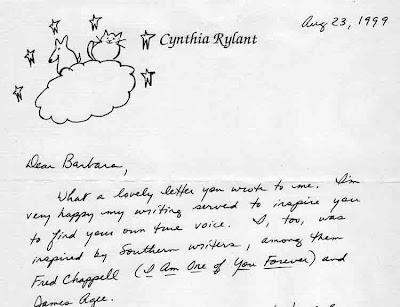 Aug 23, 1999
Cynthia Rylant
Dear Barbara,
What a lovely letter you wrote to me. I'm
very happy my writing served to inspire you
to find your own true voice. I, too, was
inspired by Southern writers, among them
Fred Chappell (I Am One of You Forever) and
James Agee.